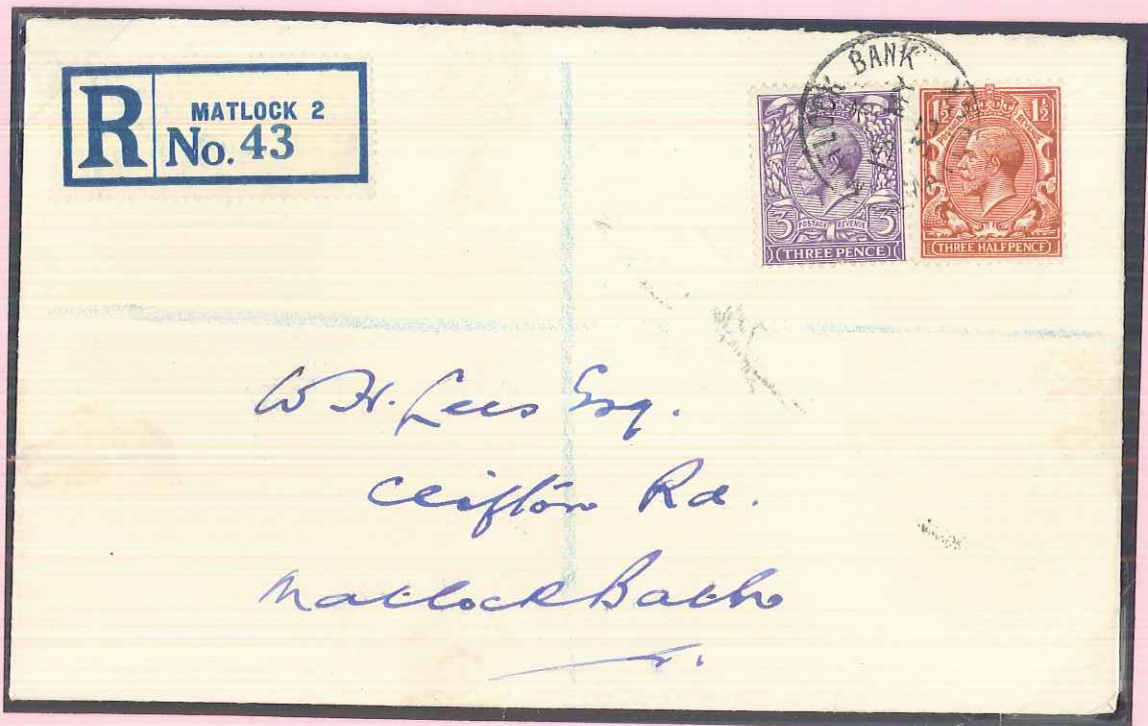 R
MATLOCK 2
No. 43
MATLOCK BANK
15 MY
3
POSTAGE REVENUE
3
THREE PENCE
1½
1½
POSTAGE REVENUE
THREE HALFPENCE
W H. Lees Esq.
Clifton Rd.
Matlock Bath